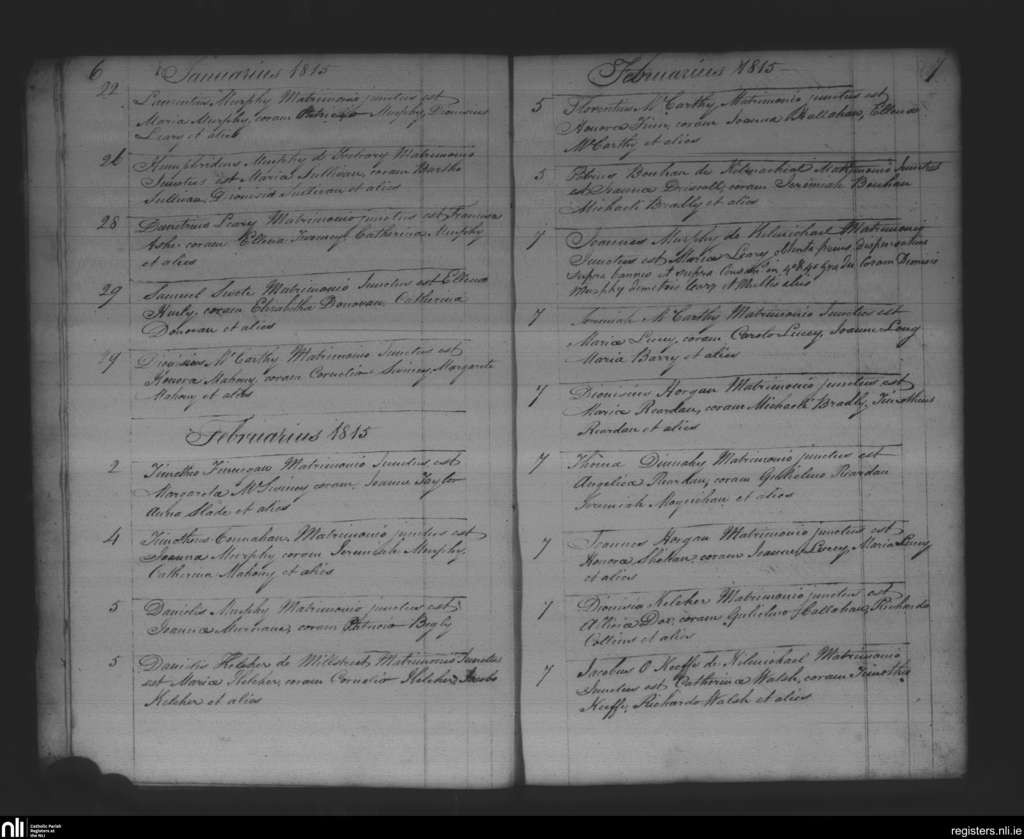 6 Januarius 1815
22 Laurentius Murphy Matrimonio junctus est
Maria Murphy, coram Patricio Murphy, Dionisius
Leary et aliis
26 Humphridus Murphy de Matrimonio
Junctus est Maria Sullivan, coram
Sullivan, Dionisio Sullivan et aliis
28 Demetrius Leary Matrimonio junctus est Francisca
Ashe coram Ellena Catherina Murphy
et aliis
29 Samuel Swete Matrimonio Junctus est Ellena
Hurly, coram Elizabetha Donovan, Catherina
Donovan et aliis
Dionisius Mc Carthy Matrimonio Junctus est
Honora Mahony, coram Cornelio Swiney, Margarita
Mahony et aliis
Februarius 1815
2 Timotheo Finnegan Matrimonio Junctus est
Margarita McSwiney coram Joanne Taylor
Anna Slade et aliis
4 Timotheus Connahan Matrimonio junctus est
Joanna Murphy coram Jeremiah Murphy,
Catherina Mahony et aliis
5 Danielis Murphy Matrimonio junctus est
Joanna Murnane, coram Patricio Begly
5 Danielis Kelcher de Millstreet Matrimonio Junctus
est Maria Kelcher, coram Cornelio Kelcher Jacobo
Kelcher et aliis
Februarius 1815 7
5 Florentius Mc Carthy Matrimonio junctus est
Honora Finn, coram Joanna Hallahan, Ellena
McCarthy et aliis
5 Petrus Benhan de Kilmichael Matrimonio Junctus
est Joanna Driscoll, coram Jeremiah Benhan
Michaeli Bradly et aliis
7 Joannes Murphy de Kilmichael Matrimonio
Junctus est Maria Leary obtenta prius dispensatione
supra bannis et supra in 4o & 4o gradu Coram Dionisio
Murphy demetrio Leary et Multis aliis
7 Jeremiah Mc Carthy Matrimonio Junctus est
Maria Lucey, coram Carolo Lucey, Joanne Long
Maria Barry et aliis
7 Dionisius Horgan Matrimonio junctus est
Maria Reardan, coram Michaeli Bradly, Timotheus
Reardan et aliis
7 Thoma Dinnahy Matrimonio junctus est
Angelica Reardan, coram Gulielmo Reardan
Jeremiah Moynihan et aliis
7 Joannes Horgan Matrimonio junctus est
Honora Shehan coram Joanne Lucey, Maria Lucey
et aliis
7 Dionisia Kelcher Matrimonio junctus est
Alicia Dox, coram Gulielmo Hallahan, Richardo
Collins et aliis
7 Jacobus O Keeffe de Kilmichael Matrimonio
Junctus est Catherina Walsh, coram Timotheo
Keeffe, Richardo Walsh et aliis
nli Catholic Parish
Registers at
the NLI
registers.nli.ie